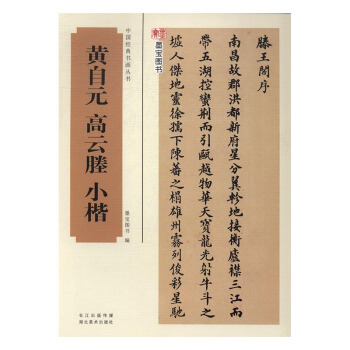 中国经典书画丛书
黄自元 高云塍 小楷
墨宝图书 编
长江出版传媒
湖北美术出版社
墨宝图书
滕王閣序
南昌故郡洪都新府星分翼軫地接衡廬襟三江而
帶五湖控蠻荊而引甌越物華天寶龍光射牛斗之
墟人傑地靈徐孺下陳蕃之榻雄州霧列俊彩星馳